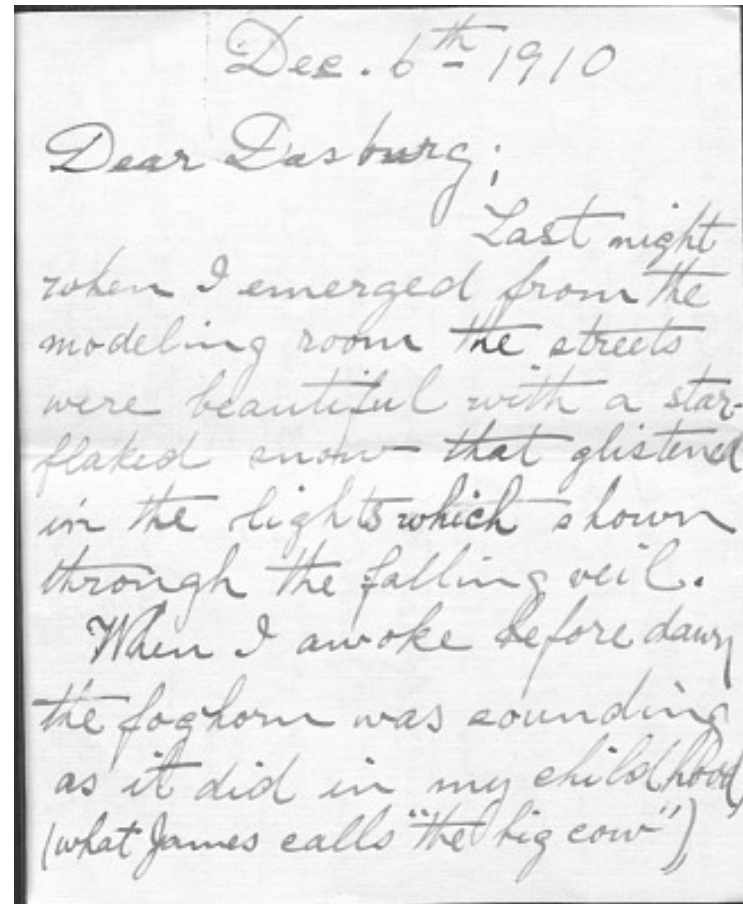 Dec. 6th 1910
Dear Dasburg;
Last night
when I emerged from the
modeling room the streets
were beautiful with a star-
flaked snow that glistened
in the lights which shown
through the falling veil.
When I awoke before dawn
the foghorn was sounding
as it did in my childhood
(what James calls "the big cow"),